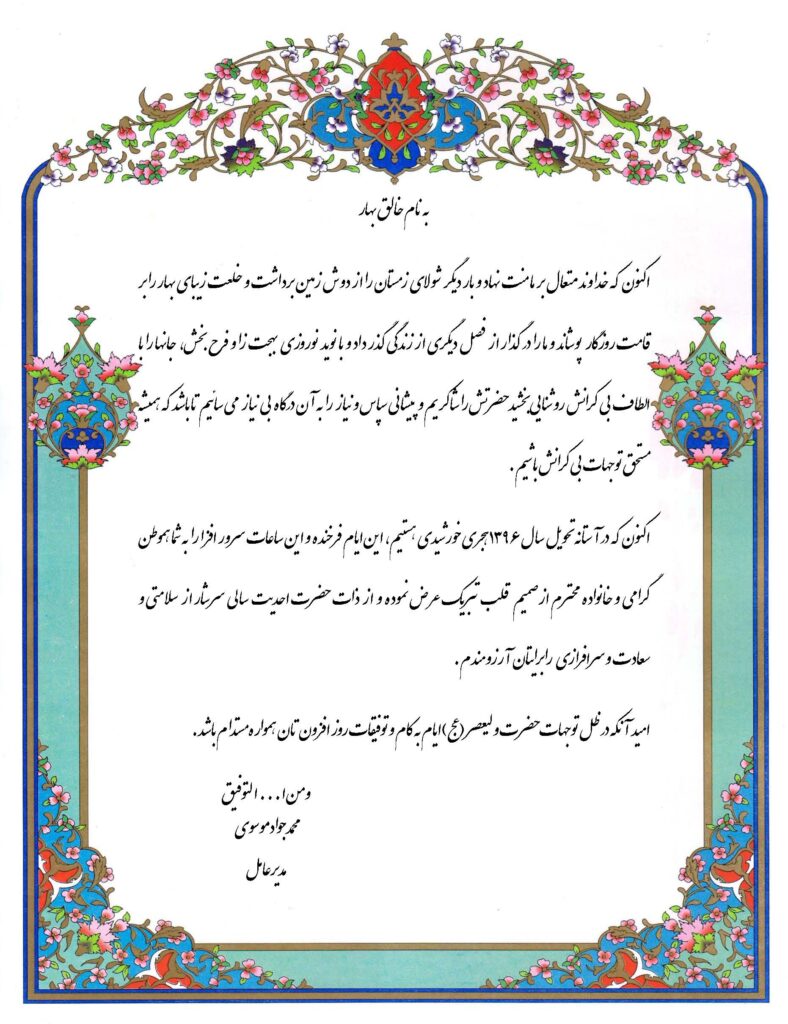 به نام خالق بهار
اکنون که خداوند متعال بر ما منت نهاد و بار دیگر شولای زمستان را از دوش زمین برداشت و خلعت زیبای بهار را بر
قامت روزگار پوشاند و ما را در گذار از فصل دیگری از زندگی گذر داد و با نوید نوروزی بهجت زا و فرح بخش، جانها را با
الطاف بی کرانش روشنایی بخشید حضرتش را شاکریم و پیشانی سپاس و نیاز را به آن درگاه بی نیاز می سائیم تا باشد که همیشه
مستحق توجهات بی کرانش باشیم .
اکنون که در آستانه تحویل سال ۱۳۹۶ هجری خورشیدی هستیم، این ایام فرخنده و این ساعات سرور افزا را به شما هموطن
گرامی و خانواده محترم از صمیم قلب تبریک عرض نموده و از ذات حضرت احدیت سالی سرشار از سلامتی و
سعادت و سرافرازی را برایتان آرزومندم .
امید آنکه در ظل توجهات حضرت ولیعصر (عج) ایام به کام و توفیقات روز افزون تان همواره مستدام باشد .
ومن ا... التوفیق
محمد جواد موسوی
مدیر عامل